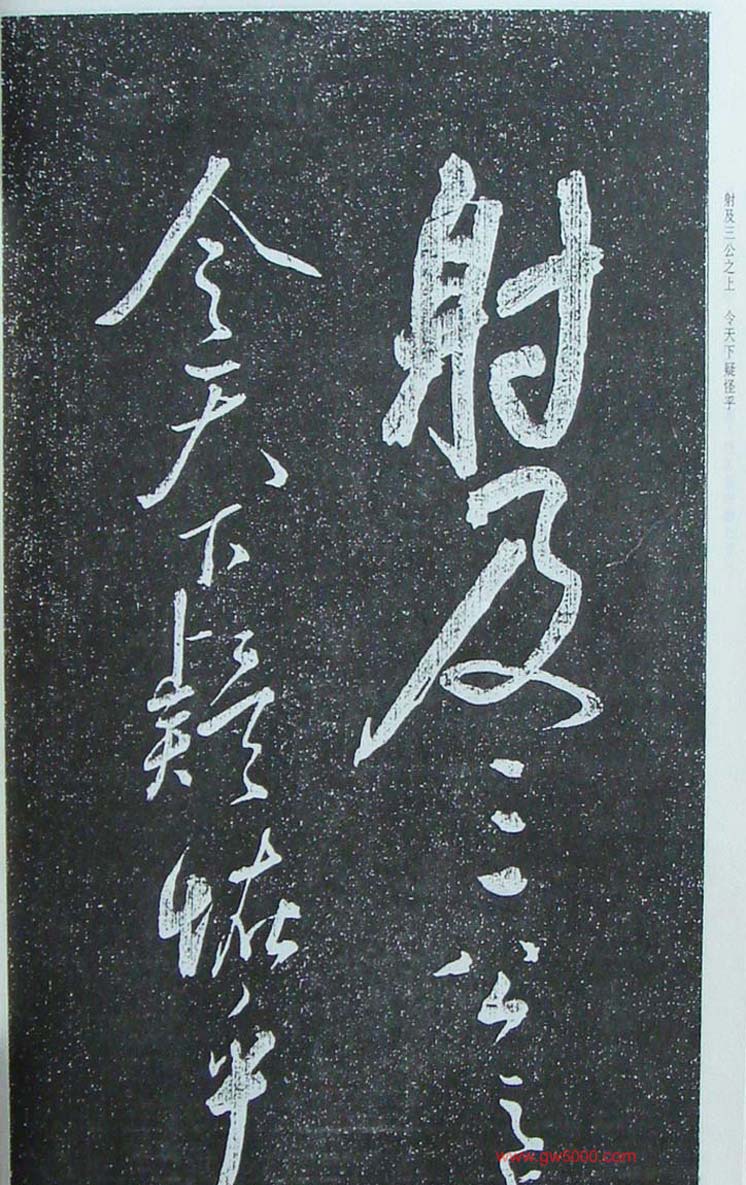 射及三公之上 令天下疑怪乎
射及三公之上
令天下疑恠乎
www.gw5000.com